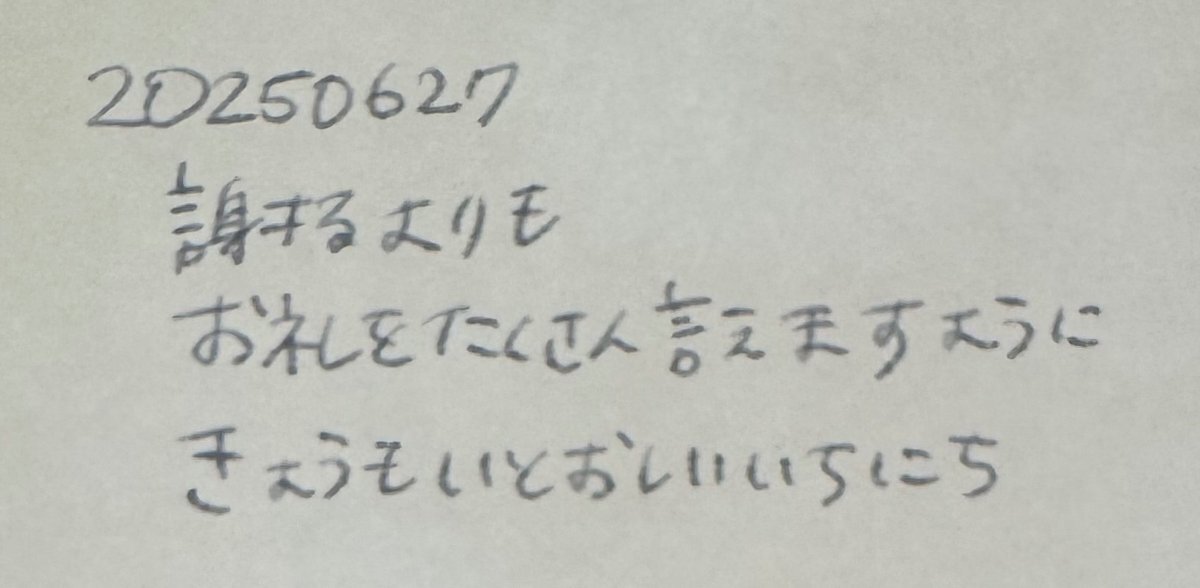 20250627
謝するよりも
お礼をたくさん言えますように
きょうもいとおしいいちにち